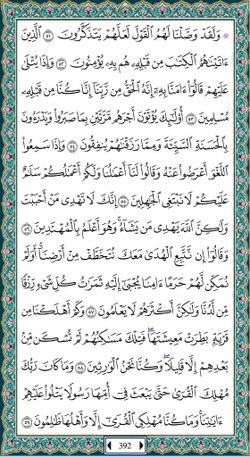 ۞ وَلَقَدْ وَصَّلْنَا لَهُمُ ٱلْقَوْلَ لَعَلَّهُمْ يَتَذَكَّرُونَ ٥١ ٱلَّذِينَ
ءَاتَيْنَٰهُمُ ٱلْكِتَٰبَ مِن قَبْلِهِۦ هُم بِهِۦ يُؤْمِنُونَ ٥٢ وَإِذَا يُتْلَىٰ
عَلَيْهِمْ قَالُوٓا۟ ءَامَنَّا بِهِۦٓ إِنَّهُ ٱلْحَقُّ مِن رَّبِّنَآ إِنَّا كُنَّا مِن قَبْلِهِۦ
مُسْلِمِينَ ٥٣ أُو۟لَٰٓئِكَ يُؤْتَوْنَ أَجْرَهُم مَّرَّتَيْنِ بِمَا صَبَرُوا۟ وَيَدْرَءُونَ
بِٱلْحَسَنَةِ ٱلسَّيِّئَةَ وَمِمَّا رَزَقْنَٰهُمْ يُنفِقُونَ ٥٤ وَإِذَا سَمِعُوا۟
ٱللَّغْوَ أَعْرَضُوا۟ عَنْهُ وَقَالُوا۟ لَنَآ أَعْمَٰلُنَا وَلَكُمْ أَعْمَٰلُكُمْ سَلَٰمٌ
عَلَيْكُمْ لَا نَبْتَغِى ٱلْجَٰهِلِينَ ٥٥ إِنَّكَ لَا تَهْدِى مَنْ أَحْبَبْتَ
وَلَٰكِنَّ ٱللَّهَ يَهْدِى مَن يَشَآءُ ۚ وَهُوَ أَعْلَمُ بِٱلْمُهْتَدِينَ ٥٦
وَقَالُوٓا۟ إِن نَّتَّبِعِ ٱلْهُدَىٰ مَعَكَ نُتَخَطَّفْ مِنْ أَرْضِنَآ ۚ أَوَلَمْ
نُمَكِّن لَّهُمْ حَرَمًا ءَامِنًا يُجْبَىٰٓ إِلَيْهِ ثَمَرَٰتُ كُلِّ شَىْءٍ رِّزْقًا
مِّن لَّدُنَّا وَلَٰكِنَّ أَكْثَرَهُمْ لَا يَعْلَمُونَ ٥٧ وَكَمْ أَهْلَكْنَا مِن
قَرْيَةٍۭ بَطِرَتْ مَعِيشَتَهَا ۖ فَتِلْكَ مَسَٰكِنُهُمْ لَمْ تُسْكَن مِّنۢ
بَعْدِهِمْ إِلَّا قَلِيلًا ۖ وَكُنَّا نَحْنُ ٱلْوَٰرِثِينَ ٥٨ وَمَا كَانَ رَبُّكَ
مُهْلِكَ ٱلْقُرَىٰ حَتَّىٰ يَبْعَثَ فِىٓ أُمِّهَا رَسُولًا يَتْلُوا۟ عَلَيْهِمْ
ءَايَٰتِنَا ۚ وَمَا كُنَّا مُهْلِكِى ٱلْقُرَىٰٓ إِلَّا وَأَهْلُهَا ظَٰلِمُونَ ٥٩
392